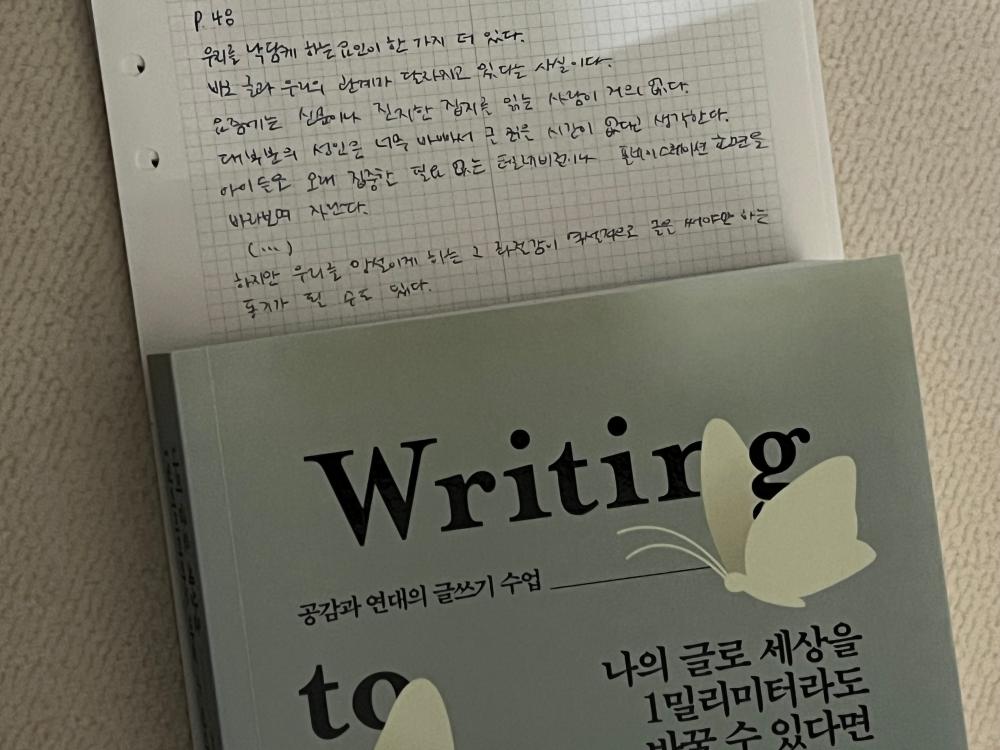 P. 48
우리를 낙담케 하는 요인이 한 가지 더 있다.
바로 글과 우리의 관계가 달라지고 있다는 사실이다.
요즘에는 신문이나 진지한 잡지를 읽는 사람이 거의 없다.
대부분의 성인은 너무 바빠서 글 읽을 시간이 없다고 생각한다.
아이들은 오래 집중할 필요 없는 텔레비전이나 플레이스테이션 화면을
바라보며 자난다.
(...)
하지만 우리를 망설이게 하는 그 좌절감이 역설적으로 글을 써야만 하는
동기가 될 수도 있다.
Writing
공감과 연대의 글쓰기 수업
to
나의 글로 세상을
1밀리미터라도
바꿀 수 있다면